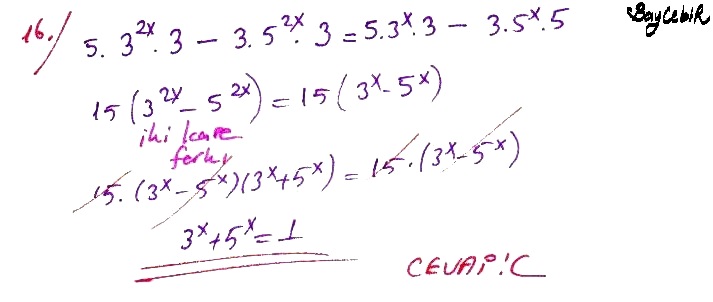 16./ 5. 3^2x. 3 − 3. 5^2x. 3 = 5.3^x.3 − 3.5^x.5
BayCebir
15 (3^2x − 5^2x) = 15 (3^x − 5^x)
iki kare
farkı
15. (3^x − 5^x)(3^x + 5^x) = 15. (3^x − 5^x)
3^x + 5^x = 1
CEVAP: C